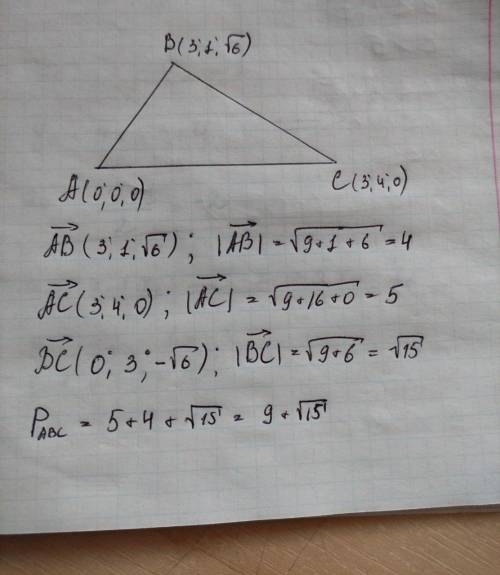 B(3; 1; √6)
A(0; 0; 0)
C(3; 4; 0)
AB→(3; 1; √6); |AB→| = √(9+1+6) = 4
AC→(3; 4; 0); |AC→| = √(9+16+0) = 5
BC→(0; 3; -√6); |BC→| = √(9+6) = √15
P_ABC = 5+4+√15 = 9+√15